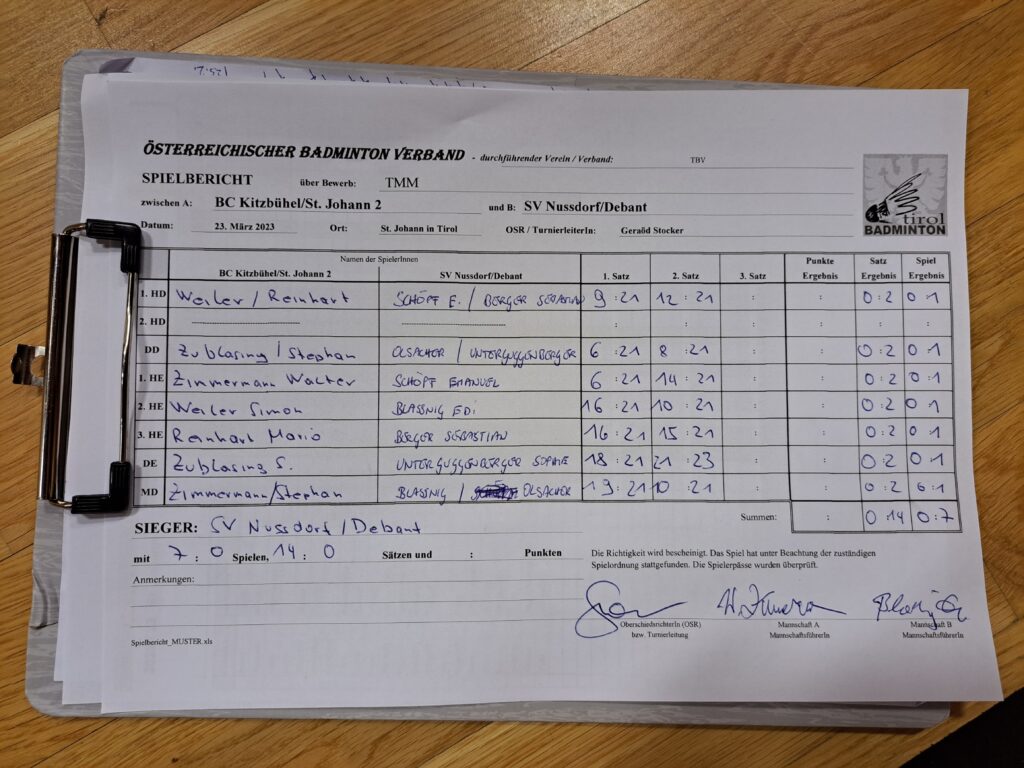 ÖSTERREICHISCHER BADMINTON VERBAND - durchführender Verein / Verband: TBV
SPIELBERICHT über Bewerb: TMM
zwischen A: BC Kitzbühel/St. Johann 2 und B: SV Nussdorf/Debant
Datum: 23. März 2023 Ort: St. Johann in Tirol OSR / TurnierleiterIn: Geraöd Stocker
tirol
BADMINTON
Namen der SpielerInnen Punkte Satz Spiel
BC Kitzbühel/St. Johann 2 SV Nussdorf/Debant 1. Satz 2. Satz 3. Satz Ergebnis Ergebnis Ergebnis
1. HD Weiler / Reinhart SCHÖPF E. / BERGER SEBASTIAN 9 : 21 12 : 21 : : 0 : 2 0 : 1
2. HD : : : : : :
DD Zublasing / Stephan OLSACHER / UNTERGUGGENBERGER 6 : 21 8 : 21 : : 0 : 2 0 : 1
1. HE Zimmermann Walter SCHÖPF EMANUEL 6 : 21 14 : 21 : : 0 : 2 0 : 1
2. HE Weiler Simon BLASSNIG EDI 16 : 21 10 : 21 : : 0 : 2 0 : 1
3. HE Reinhart Mario BERGER SEBASTIAN 16 : 21 15 : 21 : : 0 : 2 0 : 1
DE Zublasing S. UNTERGUGGENBERGER SOPHIE 18 : 21 21 : 23 : : 0 : 2 0 : 1
MD Zimmermann/Stephan BLASSNIG / OLSACHER 19 : 21 10 : 21 : : 0 : 2 0 : 1
SIEGER: SV Nussdorf/Debant Summen: : 0 : 14 0 : 7
mit 7 : 0 Spielen, 14 : 0 Sätzen und : Punkten
Die Richtigkeit wird bescheinigt. Das Spiel hat unter Beachtung der zuständigen
Spielordnung stattgefunden. Die Spielerpässe wurden überprüft.
Anmerkungen:
OberschiedsrichterIn (OSR) Mannschaft A Mannschaft B
bzw. Turnierleitung MannschaftsführerIn MannschaftsführerIn
Spielbericht_MUSTER.xls